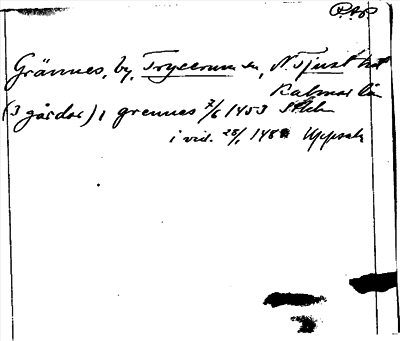 Grännes, by, Tryserum sn, N. Tjust hd
Kalmar län
(3 gårdar) i grennes 7/6 1453 Sthlm
i vid. 28/1 148 Uppsala